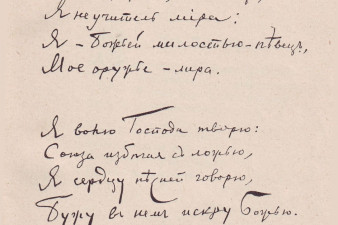 Я не учитель міра:
Я - Божьей милостью - пѣвецъ,
Мое оружье - лира.
Я волю Господа творю:
Союза избѣгая съ ложью,
Я сердцу пѣсней говорю,
Бужу въ немъ искру Божью.